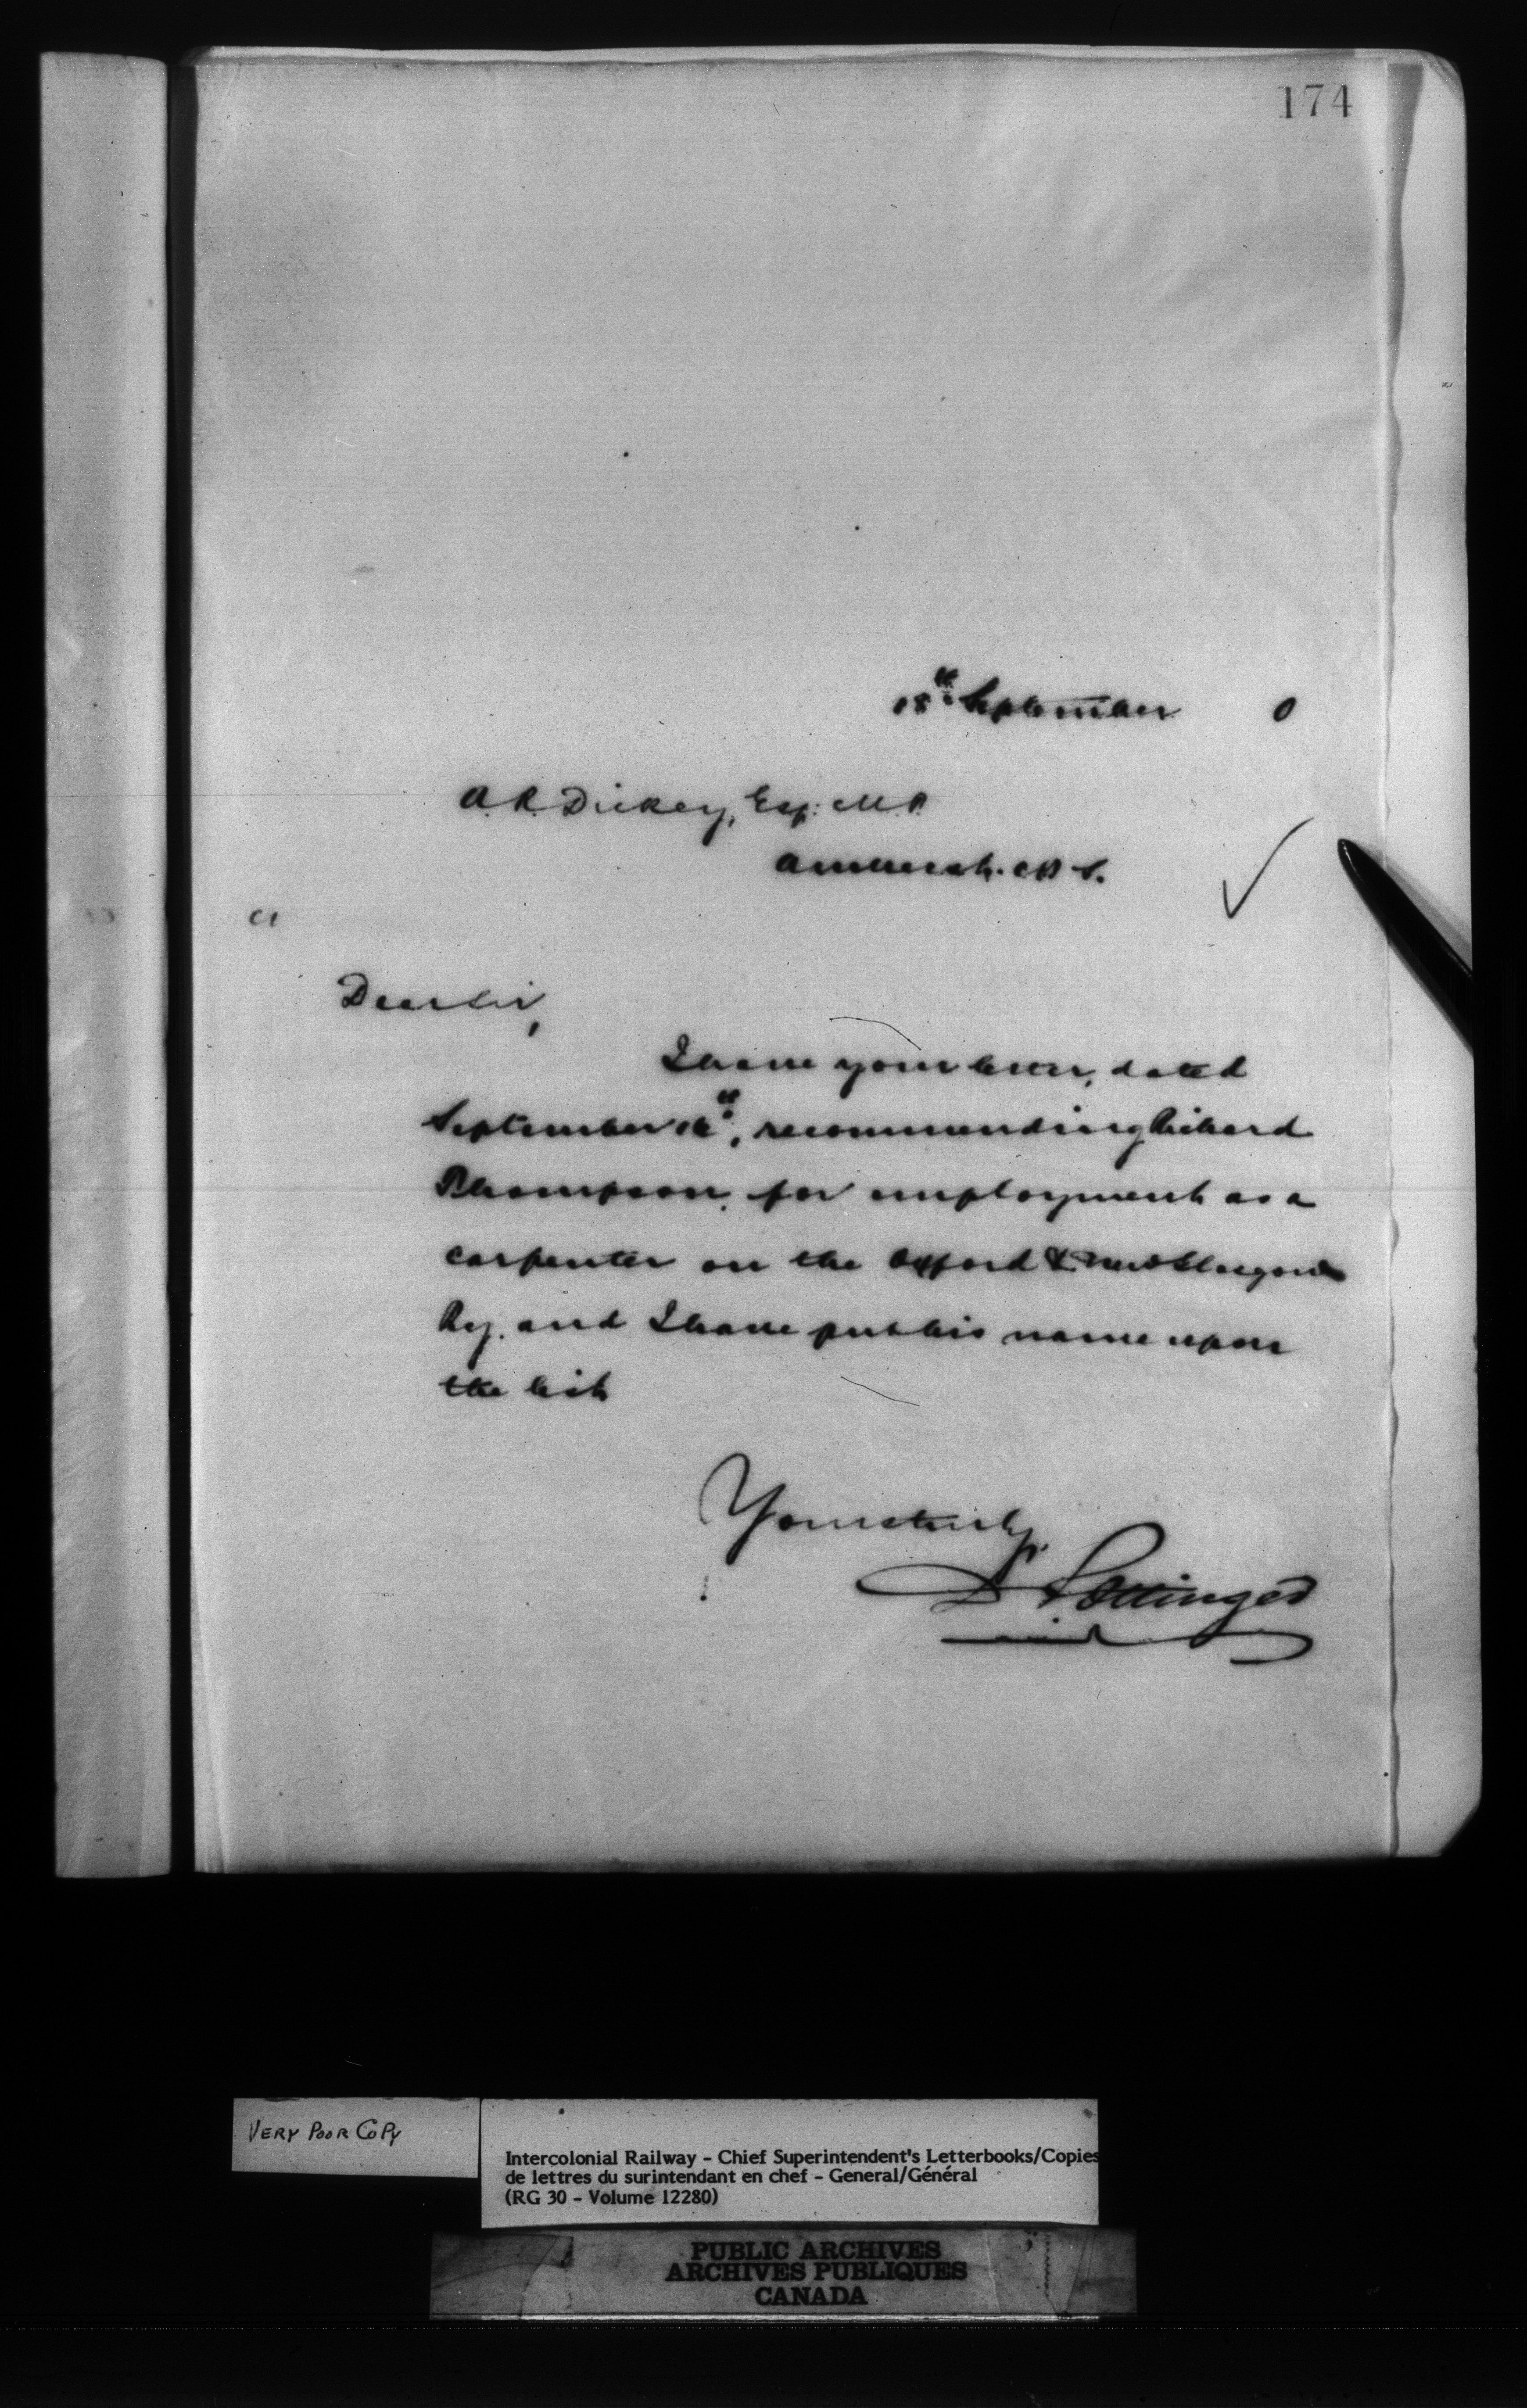 174
18th September 0
A. R. Dickey, Esq. M.P.
Amherst. N.S.
Dear Sir,
I have your letter, dated
September, recommending Richard
Thompson, for employment as a
carpenter on the Oxford & New Glasgow
Ry. and I have put his name upon
the list
Yours truly,
D Pottinger
VERY POOR COPY
Intercolonial Railway - Chief Superintendent's Letterbooks/Copies
de lettres du surintendant en chef - General/Général
(RG 30 - Volume 12280)
PUBLIC ARCHIVES
ARCHIVES PUBLIQUES
CANADA